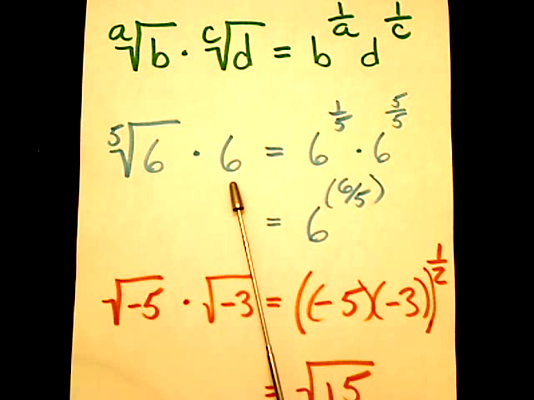 ᵃ√b · ᶜ√d = b^(1/a) d^(1/c)
⁵√6 · 6 = 6^(1/5) · 6^(5/5)
= 6^(6/5)
√-5 · √-3 = ((-5)(-3))^(1/2)
= √15